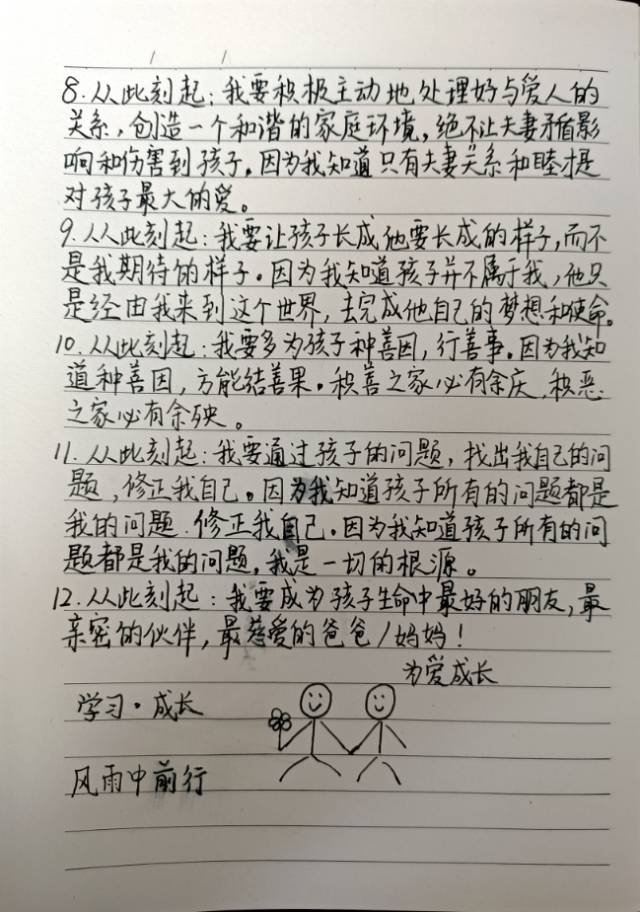 8.从此刻起：我要积极主动地处理好与爱人的
关系，创造一个和谐的家庭环境，绝不让夫妻矛盾影
响和伤害到孩子。因为我知道只有夫妻关系和睦才是
对孩子最大的爱。
9.从此刻起：我要让孩子长成他要长成的样子，而不
是我期待的样子。因为我知道孩子并不属于我，他只
是经由我来到这个世界，去完成他自己的梦想和使命。
10.从此刻起：我要多为孩子种善因，行善事。因为我知
道种善因，方能结善果。积善之家必有余庆，积恶
之家必有余殃。
11.从此刻起：我要通过孩子的问题，找出我自己的问
题，修正我自己。因为我知道孩子所有的问题都是
我的问题.修正我自己。因为我知道孩子所有的问
题都是我的问题，我是一切的根源。
12.从此刻起：我要成为孩子生命中最好的朋友，最
亲密的伙伴，最慈爱的爸爸/妈妈！
为爱成长
学习·成长
风雨中前行